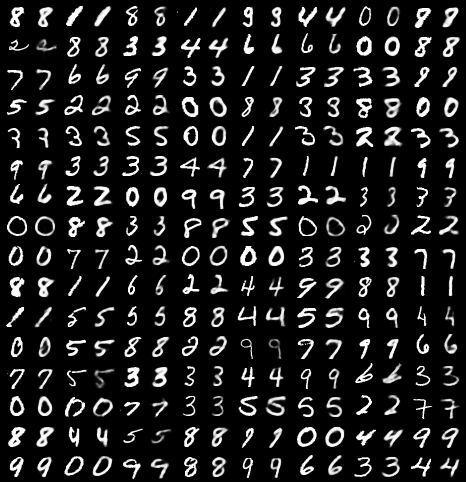 8 8 1 1 8 8 1 1 9 9 4 4 0 0 8 8
2 2 8 8 3 3 4 4 6 6 6 6 0 0 8 8
7 7 6 6 9 9 3 3 1 1 3 3 3 3 9 9
5 5 2 2 2 2 0 0 8 8 3 3 8 8 0 0
7 7 3 3 5 5 0 0 1 1 3 3 2 2 3 3
9 9 3 3 3 3 4 4 7 7 1 1 1 1 9 9
6 6 2 2 0 0 9 9 3 3 2 2 3 3 3 3
0 0 8 8 3 3 8 8 5 5 0 0 2 0 2 2
0 0 7 7 2 2 0 0 0 0 3 3 3 3 7 7
8 8 1 1 6 6 2 2 4 4 9 9 8 8 1 1
1 1 5 5 5 5 8 8 4 4 5 5 9 9 4 4
0 0 5 5 8 8 2 2 9 9 7 7 9 9 6 6
7 7 5 5 3 3 3 3 4 4 9 9 6 6 3 3
0 0 0 0 7 7 3 3 5 5 5 5 2 2 7 7
8 8 4 4 5 5 8 8 9 9 0 0 4 4 9 9
9 9 0 0 9 9 8 8 9 9 6 6 3 3 4 4